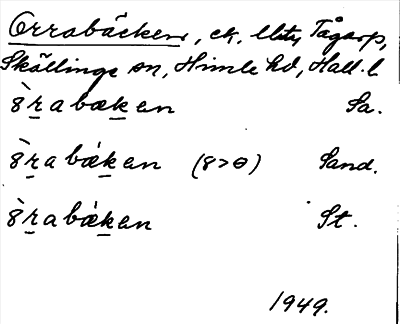 Orrabäcken, ek, Tågarp,
Skällinge sn, Himle hd, Hall. l
8̀r̲abæk̲en Sa.
8̀r̲abǽk̲en (8>ɵ) Sand.
8̀r̲abǽk̲en St.
1949.